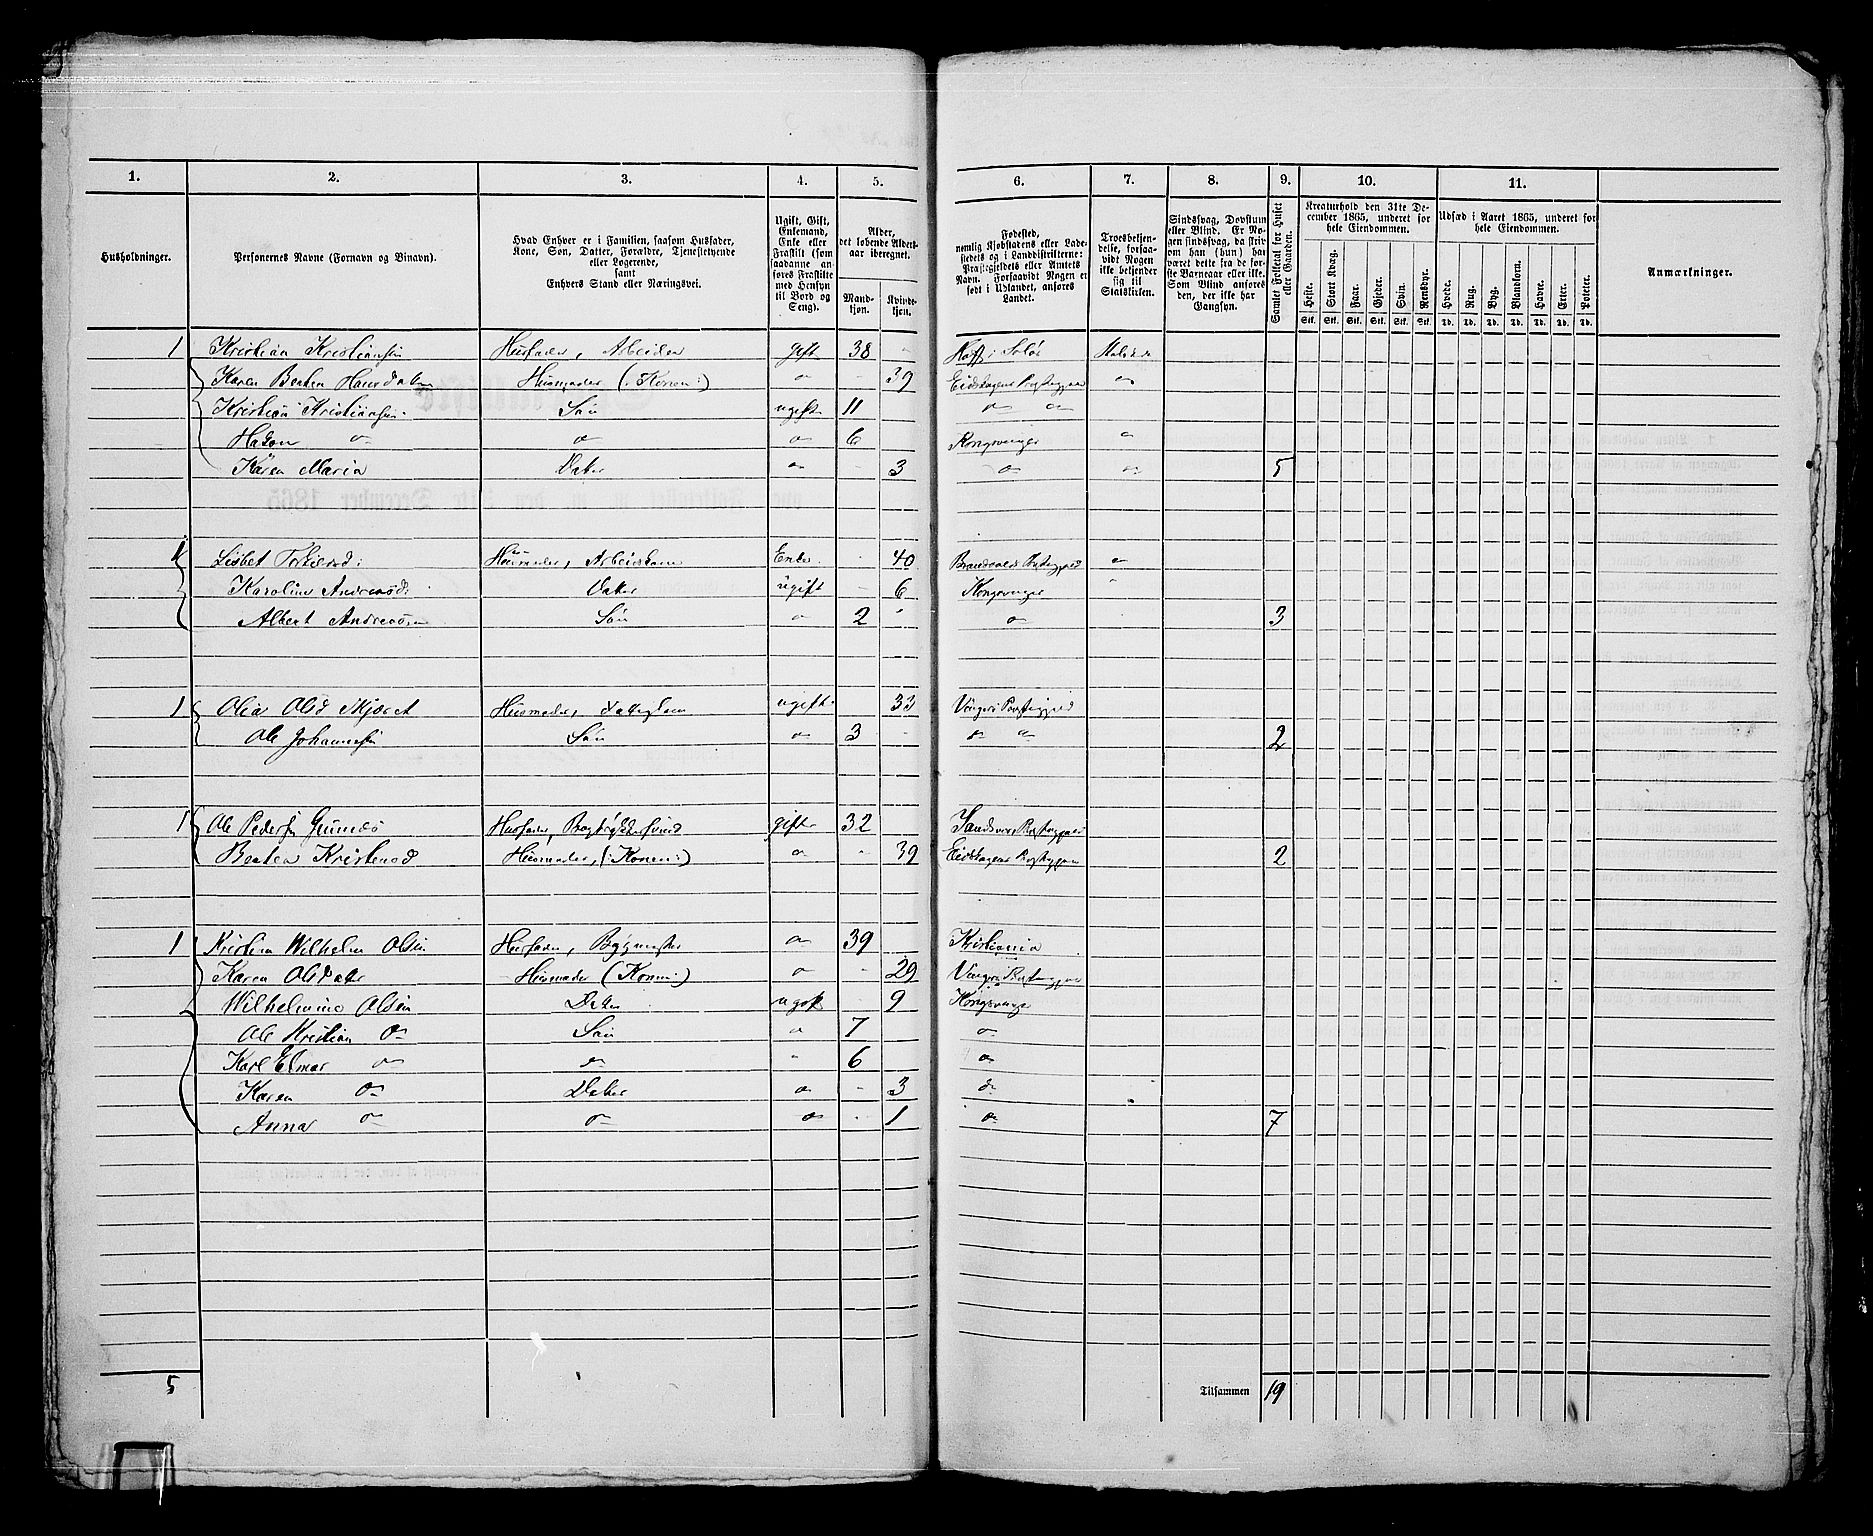 1. 2. 3. 4. 5. 6. 7. 8. 9. 10. 11.
Husholdninger.
Personernes Navne (Fornavn og Binavn).
Hvad Enhver er i Familien, saasom Husfader,
Kone, Søn, Datter, Forældre, Tjenestetyende
eller Logerende,
samt
Enhvers Stand eller Næringsvei.
Ugift, Gift,
Enkemand,
Enke eller
Fraskilt (som
saadanne an-
føres Fraskilte
med Hensyn
til Bord og
Seng).
Alder,
det løbende Alders-
aar iberegnet.
Mand-
kjøn.
Kvinde-
kjøn.
Fødested,
nemlig Kjøbstadens eller Lade-
stedets og i Landdistrikterne:
Præstegjeldets eller Amtets
Navn. Forsaavidt Nogen er
født i Udlandet, anføres
Landet.
Troesbekjen-
delse, forsaa-
vidt Nogen
ikke bekjender
sig til
Statskirken.
Sindssvag, Døvstum
eller Blind. Er No-
gen sindssvag, da skri-
ves om han (hun) har
været dette fra de før-
ste Barneaar eller ikke.
Som Blind ansøres
den, der ikke har
Gangsyn.
Samlet Folketal for Huset
eller Gaarden.
Kreaturhold den 31te De-
cember 1865, underet for
hele Eiendommen.
Heste. Stort Kvæg. Faar. Gjeder. Svin. Rensdyr.
Stk. Stk. Stk. Stk. Stk. Stk.
Udsæd i Aaret 1865, underet for
hele Eiendommen.
Hvede. Rug. Byg. Blandkorn. Havre. Erter. Poteter.
Td. Td. Td. Td. Td. Td. Td.
Anmærkninger.
1 Kristian Kristiansen Husfader, Arbeider gift 38 - Hoff i Solør
Karen Beathe Husmoder (Konen:) " 39 Eidskogens
Kristian Kristiansen Søn ugift 11
Hakon 6 Kongsvinger
Karen Maria Datter 3 5
1 Lisbet Husmoder, Enke 40 Brandvolds
Karoline Andreasd: Datter ugift - 6 Kongsvinger
Albert Andreassen Søn 2 3
1 Olia Olsd Husmoder, ugift 33 Vingers
Ole Johannesen Søn 3 - 2
1 Ole Pedersen Husfader, gift 32
Beathe Kristensd Husmoder, (:Konen:) 39 Eidskogens 2
1 Kristian Wilhelm Olsen Husfader, Bygmester 39 Kristiania
Karen Olsdatter Husmoder (Konen:) 29 Vingers
Wilhelmine Olsen Datter ugift 9 Kongsvinger
Ole Kristian Søn 7
Karl Elmar 6
Karen Datter 3
Anna 1 7
5 Tilsammen 19